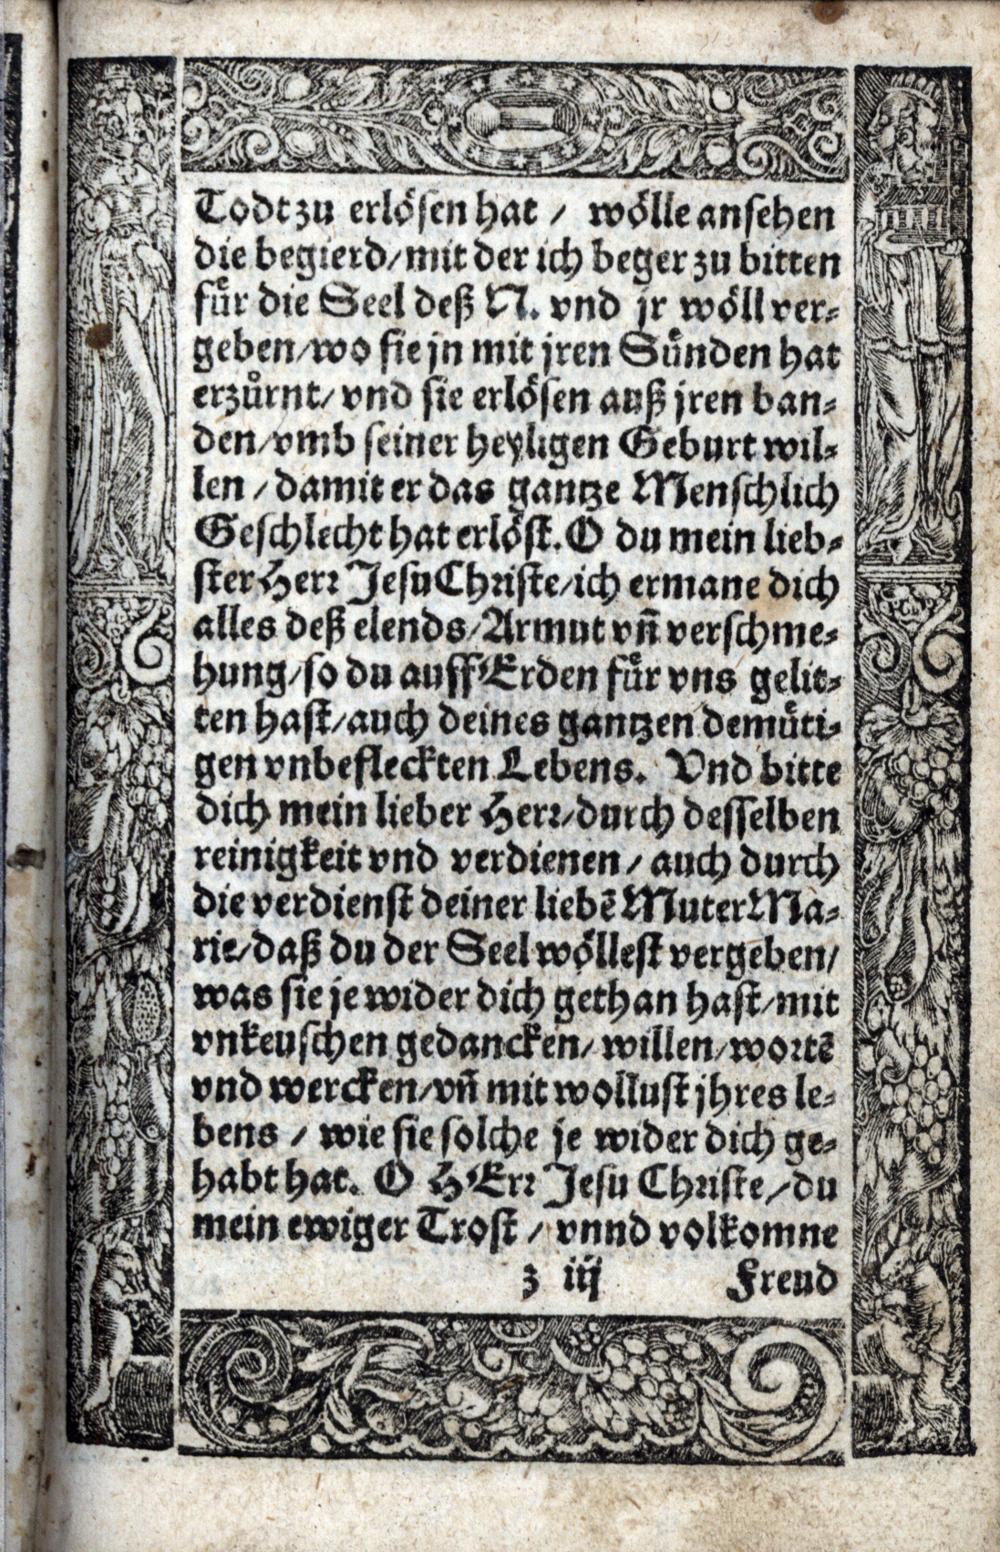 Todt zu erlösen hat / wölle ansehen
die begierd / mit der ich beger zu bitten
fuͤr die Seel deß N. vnd jr woͤll ver⸗
geben / wo sie jn mit jren Suͤnden hat
erzuͤrnt / vnd sie erloͤsen auß jren ban⸗
den / vmb seiner heyligen Geburt wil⸗
len / damit er das gantze Menschlich
Geschlecht hat erloͤst. O du mein lieb⸗
ster Herr Jesu Christe / ich ermane dich
alles deß elends / Armut vñ verschme⸗
hung / so du auff Erden fuͤr vns gelit⸗
ten hast / auch deines gantzen demuͤti⸗
gen vnbefleckten Lebens. Vnd bitte
dich mein lieber Herr / durch desselben
reinigkeit vnd verdienen / auch durch
die verdienst deiner liebē Muter Ma⸗
rie / daß du der Seel woͤllest vergeben /
was sie je wider dich gethan hast / mit
vnkeuschen gedancken / willen / wortē
vnd wercken / vñ mit wollust jhres le⸗
bens / wie sie solche je wider dich ge⸗
habt hat. O HErr Jesu Christe / du
mein ewiger Trost / vnnd volkomne
z iij Freud